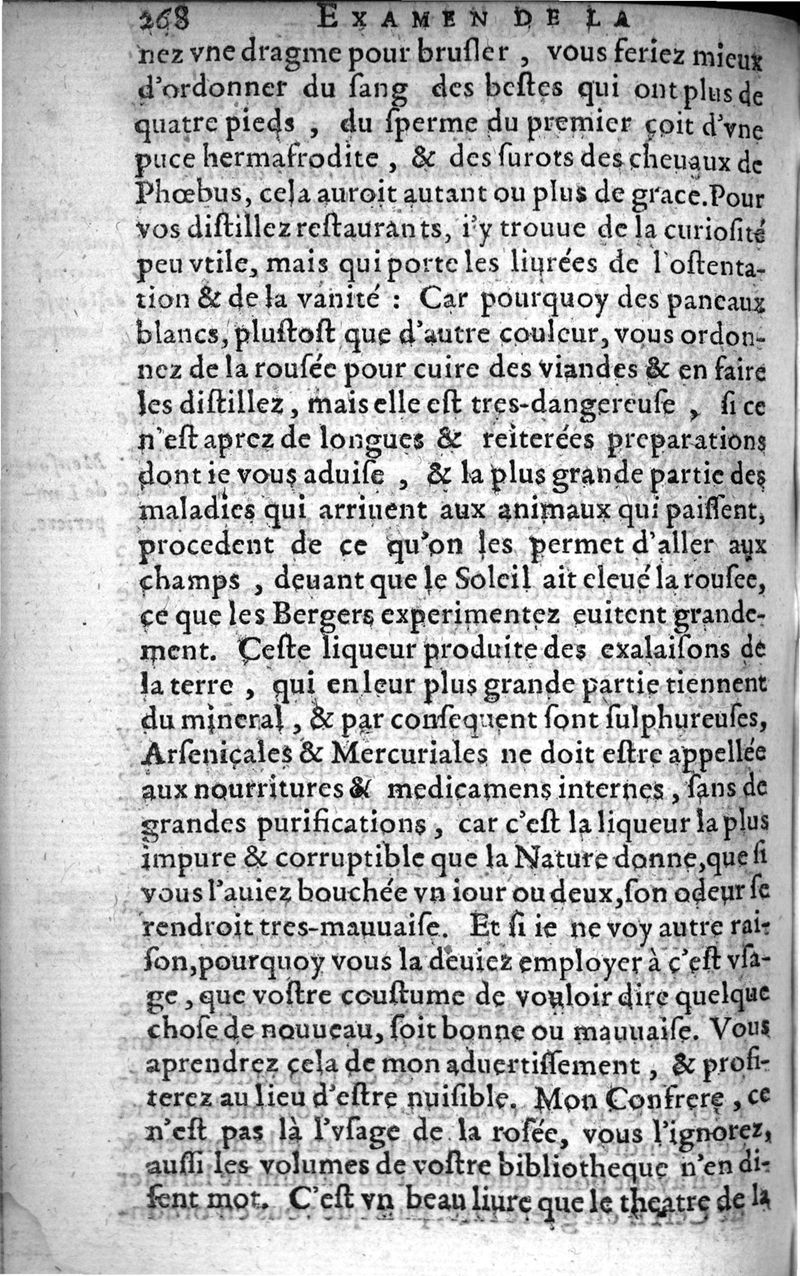 268 EXAMEN DE LA
nez vne dragme pour brusler , vous feriez mieux
d'ordonner du sang des bestes qui ont plus de
quatre pieds , du sperme du premier coit d'vne
puce hermafrodite , & des surots des cheuaux de
Phœbus, cela auroit autant ou plus de grace. Pour
vos distillez restaurants, i'y trouue de la curiosité
peu vtile, mais qui porte les liurées de l'ostenta-
tion & de la vanité : Car pourquoy des paneaux
blancs, plustost que d'autre couleur, vous ordon-
nez de la rousée pour cuire des viandes & en faire
les distillez, mais elle est tres-dangereuse , si ce
n'est aprez de longues & reiterées preparations
dont ie vous aduise , & la plus grande partie des
maladies qui arriuent aux animaux qui paissent,
procedent de ce qu'on les permet d'aller aux
champs , deuant que le Soleil ait eleué la rousee,
ce que les Bergers experimentez euitent grande-
ment. Ceste liqueur produite des exalaisons de
la terre , qui en leur plus grande partie tiennent
du mineral, & par consequent sont sulphureuses,
Arsenicales & Mercuriales ne doit estre appellée
aux nourritures & medicamens internes, sans de
grandes purifications, car c'est la liqueur la plus
impure & corruptible que la Nature donne, que si
vous l'auiez bouchée vn iour ou deux, son odeur se
rendroit tres-mauuaise. Et si ie ne voy autre rai-
son, pourquoy vous la deuiez employer à c'est vsa-
ge, que vostre coustume de vouloir dire quelque
chose de nouueau, soit bonne ou mauuaise. Vous
aprendrez cela de mon aduertissement, & profi-
terez au lieu d'estre nuisible. Mon Confrere, ce
n'est pas là l'vsage de la rosée, vous l'ignorez,
aussi les volumes de vostre bibliotheque n'en di-
sent mot. C'est vn beau liure que le theatre de la